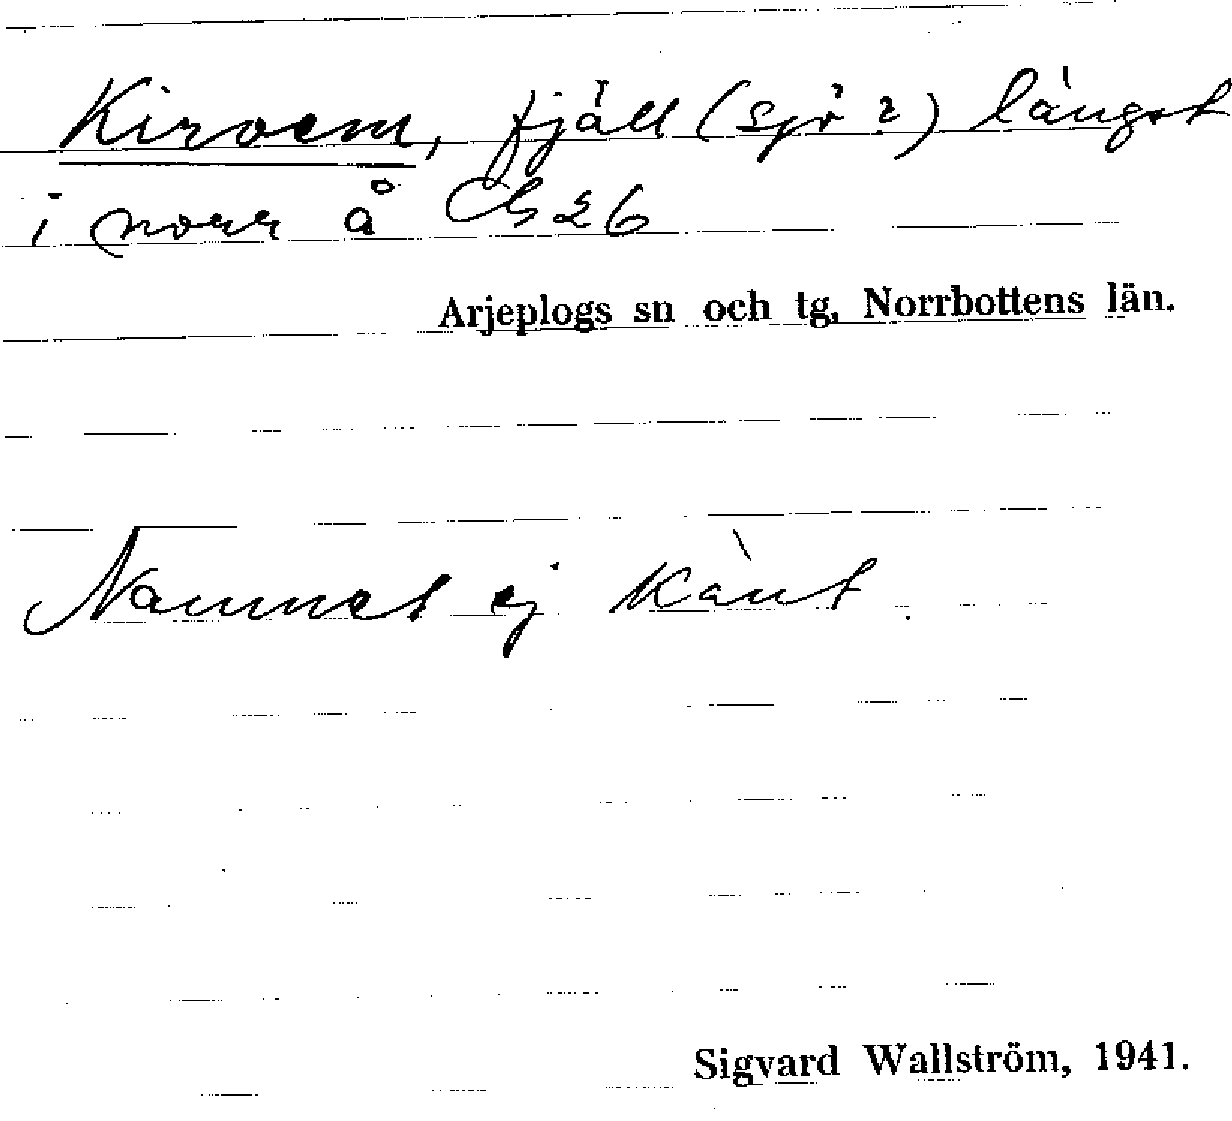 Kirvem, fjäll (sjö?) längst
i norr å Gb 26
Arjeplogs sn och tg, Norrbottens län.
Namnet ej känt
Sigvard Wallström, 1941.